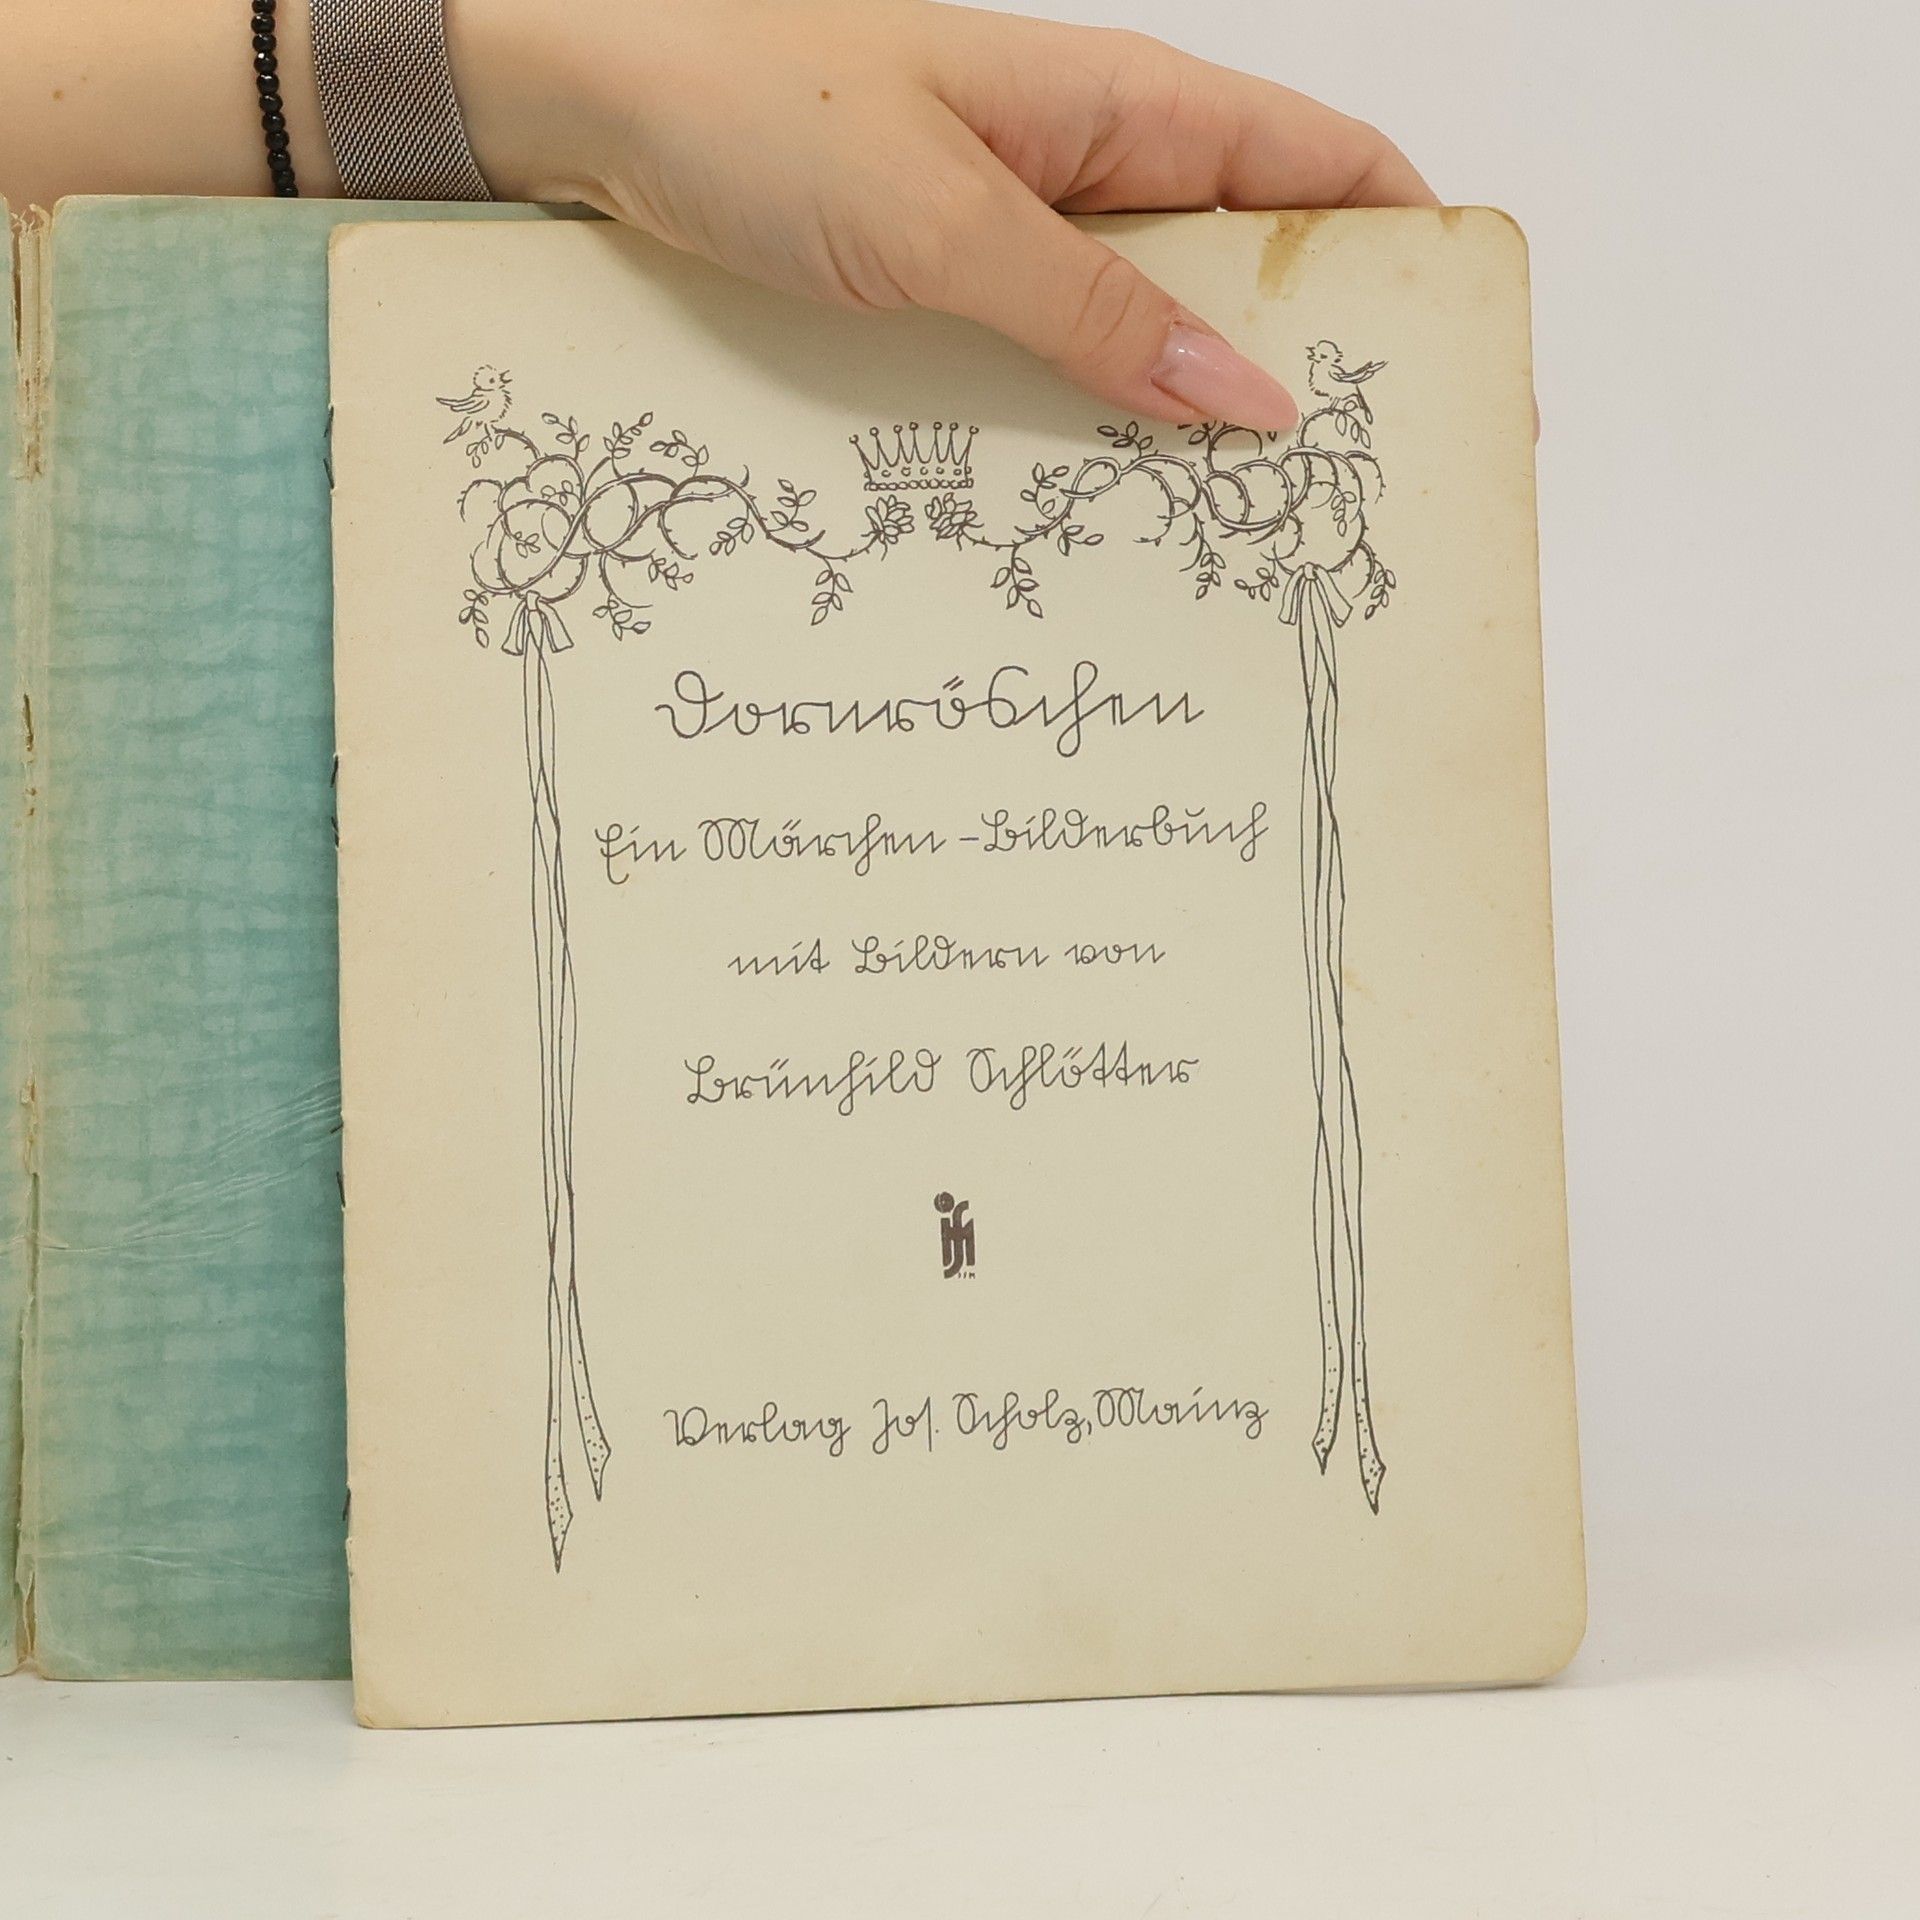 Dornröschen
Ein Märchen-Bilderbuch
mit Bildern von
Brünhild Schlötter
Verlag Jos. Scholz, Mainz